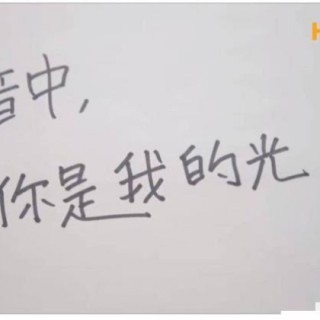 H
音中,
你是我的光